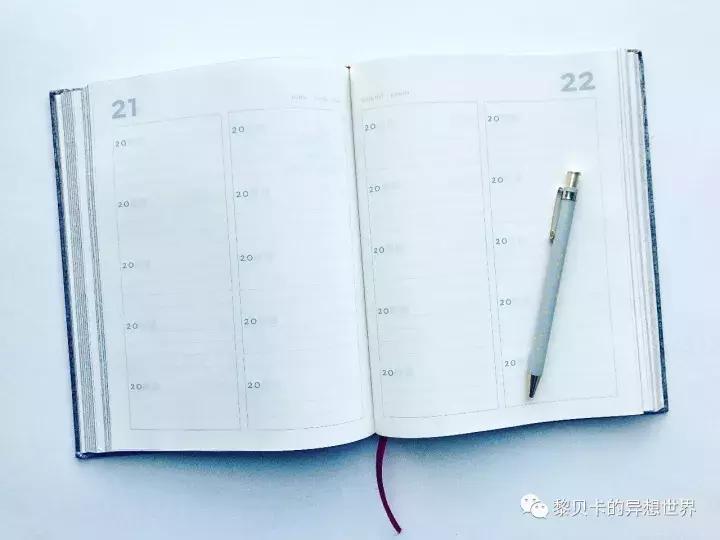 21
20
20
20
20
20
20
20
20
20
20
22
20
20
20
20
20
20
20
20
20
20
黎贝卡的异想世界